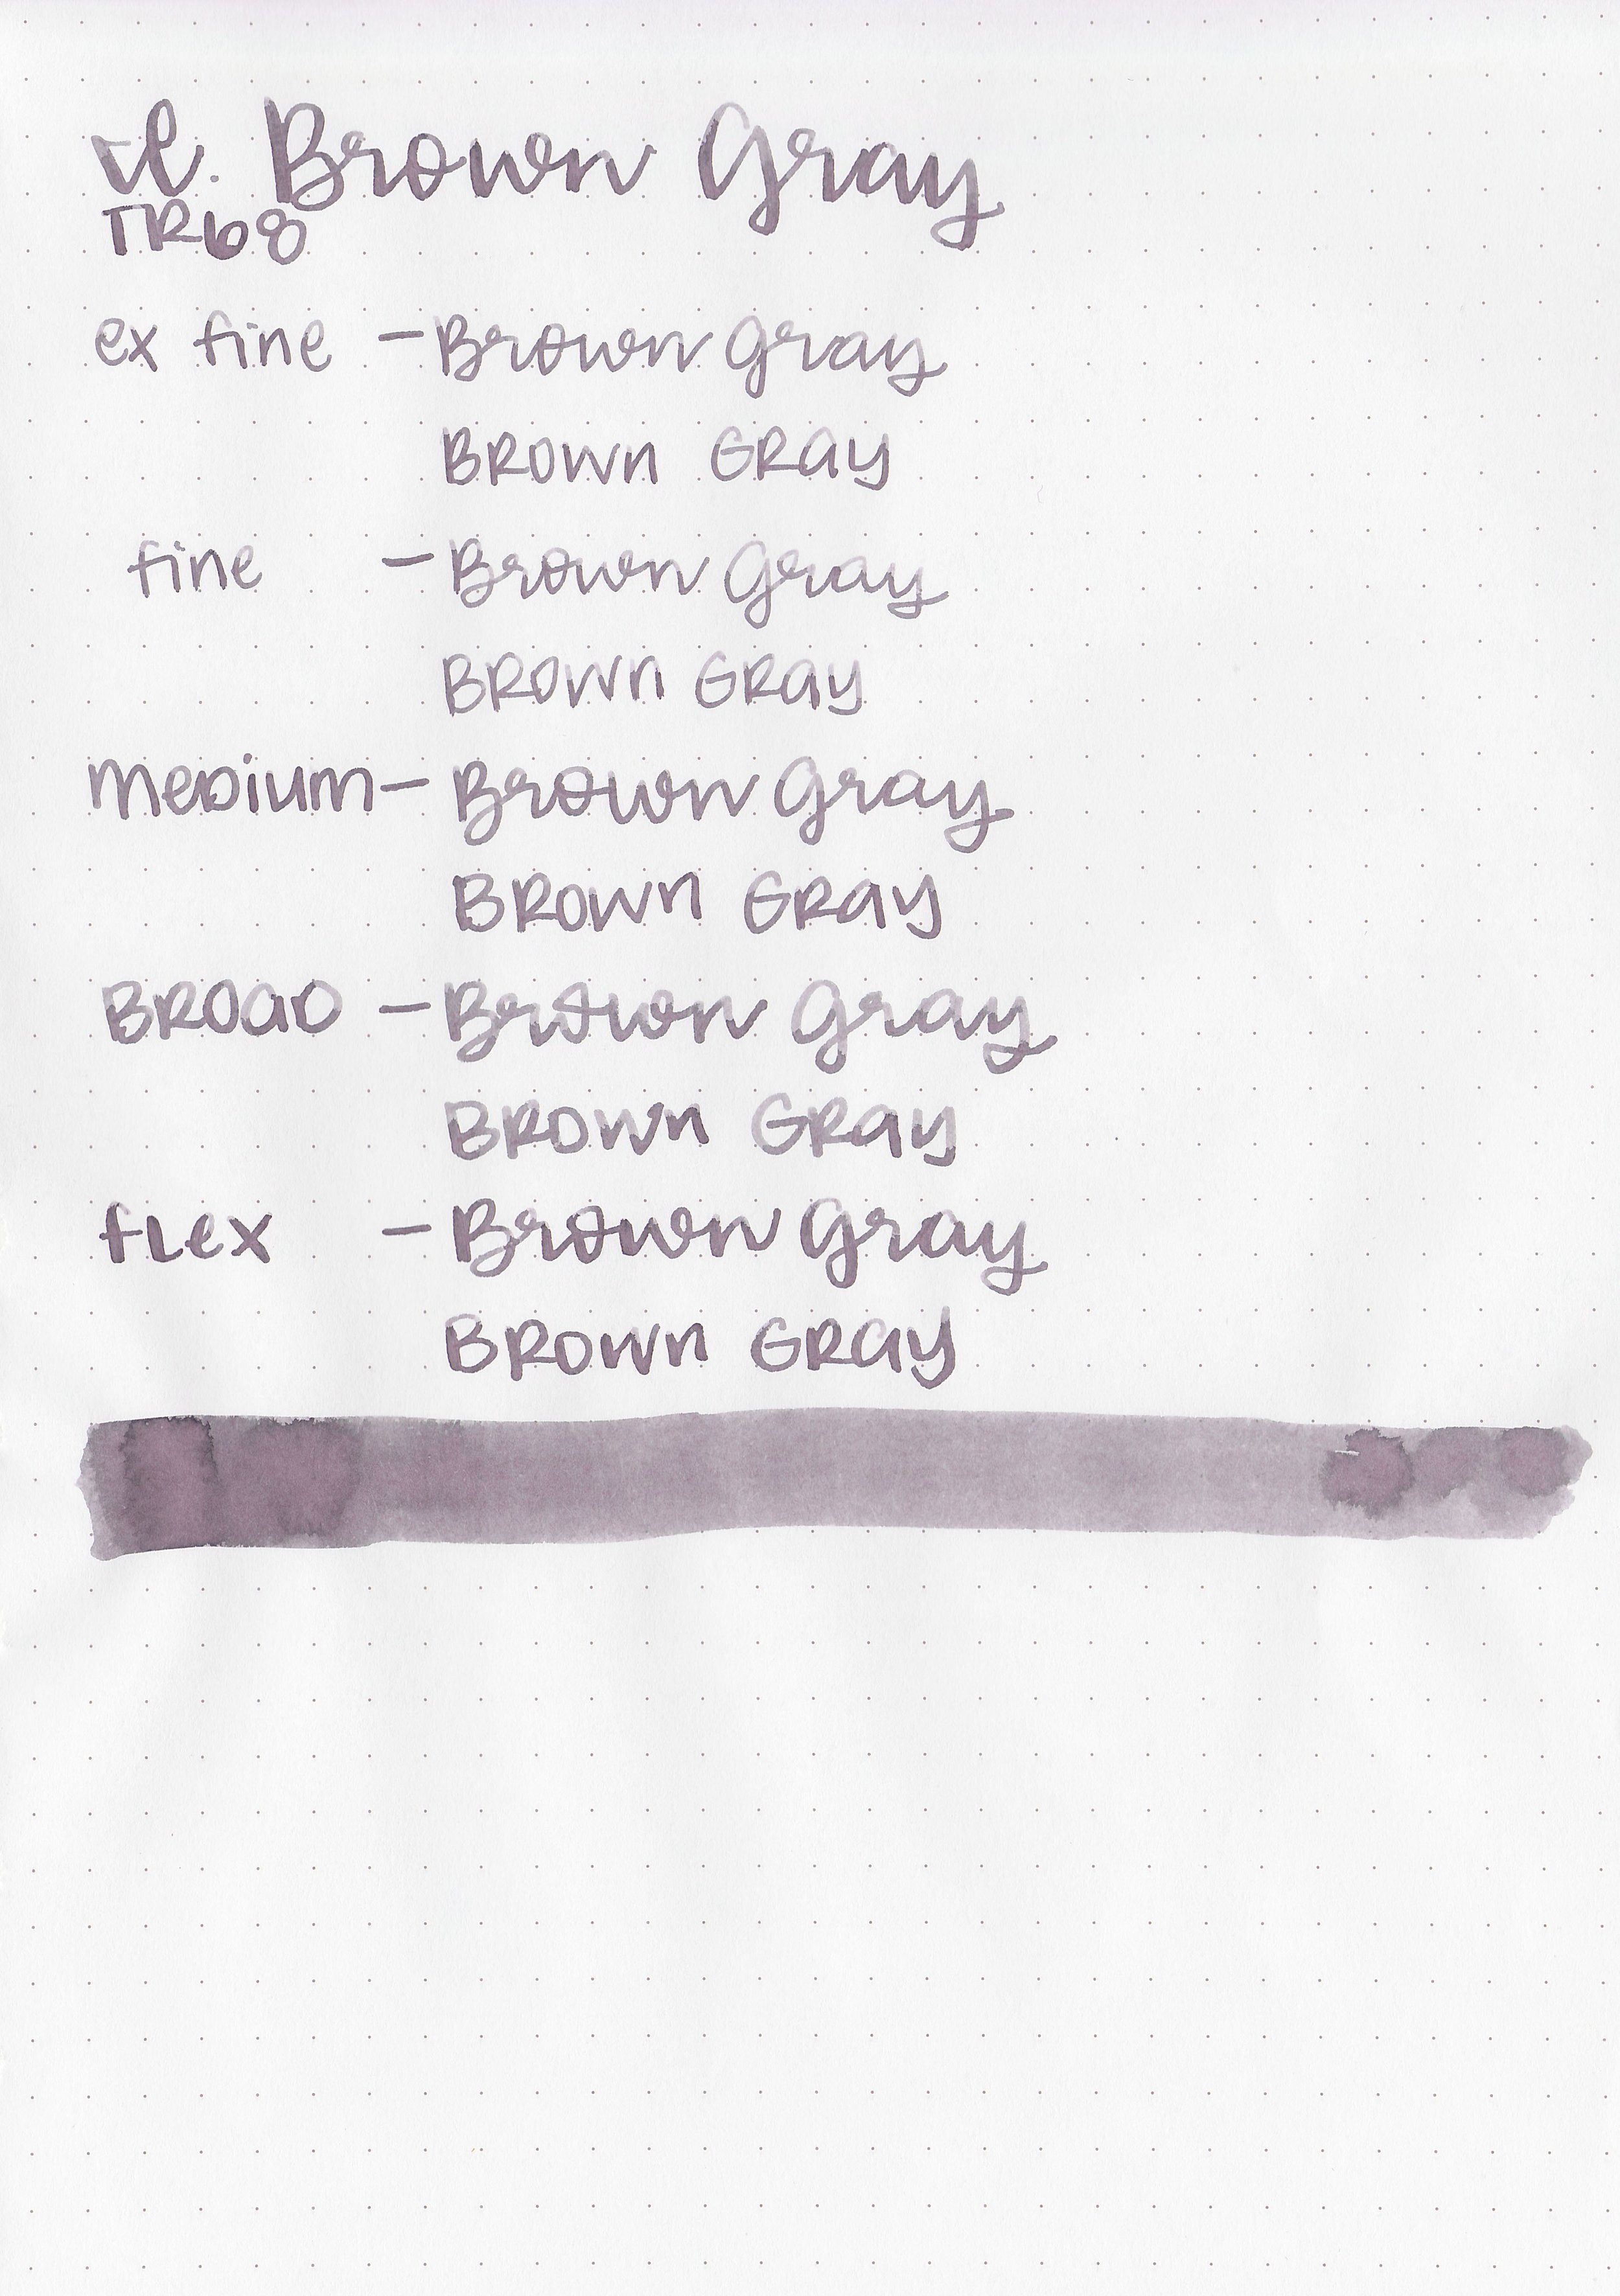 Vl. Brown Gray
TR68
ex fine - Brown Gray
BROWN GRAY
fine - Brown Gray
BROWN GRAY
Medium - Brown Gray
BROWN GRAY
BROAD - Brown Gray
BROWN GRAY
flex - Brown Gray
BROWN GRAY